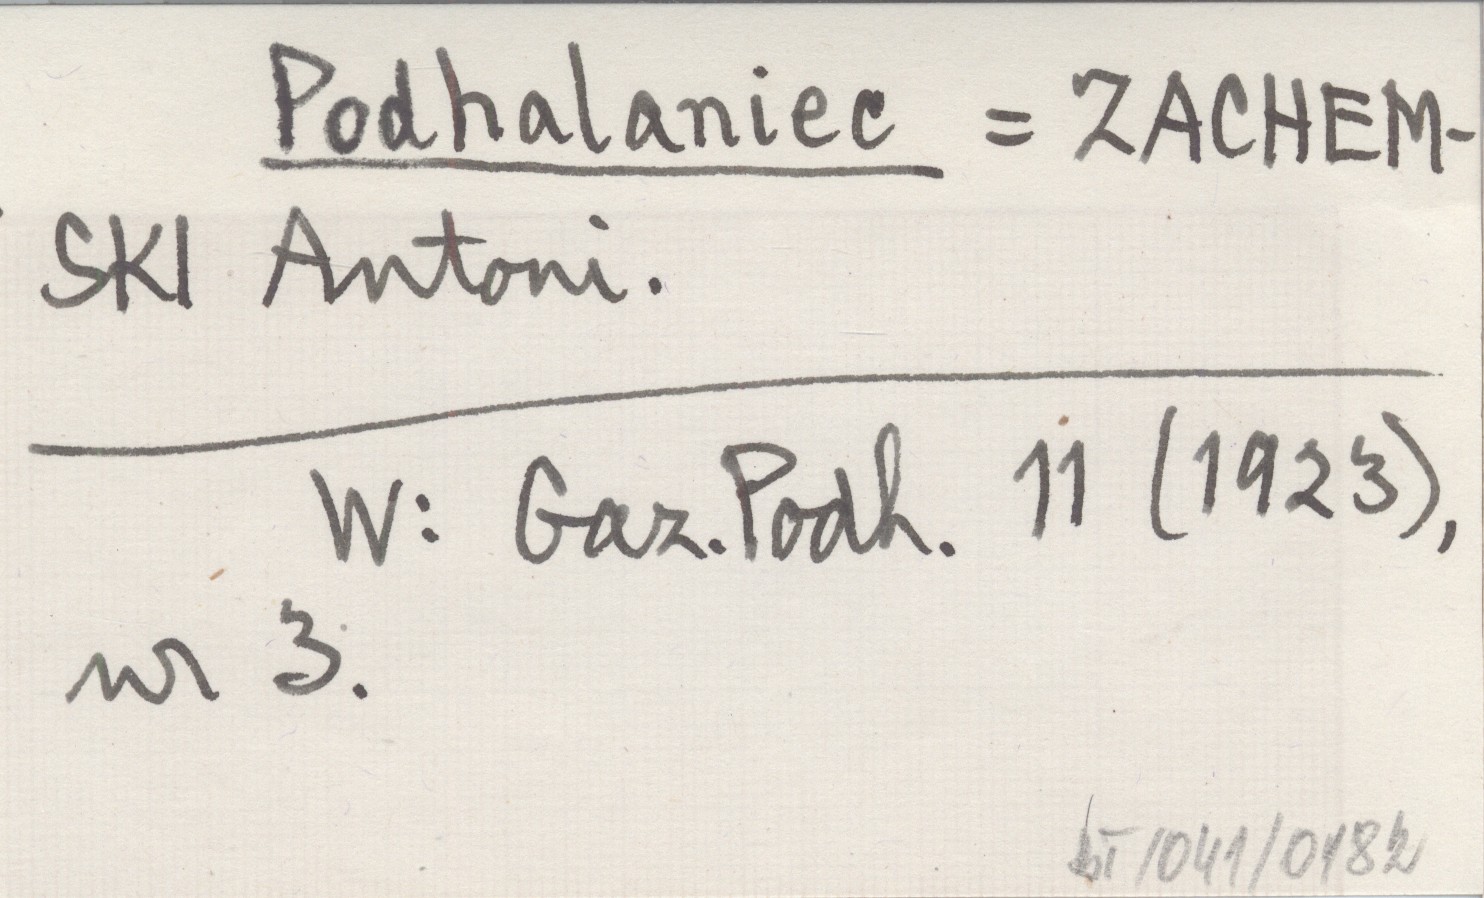 Podhalaniec = ZACHEM-
SKI Antoni.
W: Gaz. Podh. 11 (1923),
nr 3.
/041/0182